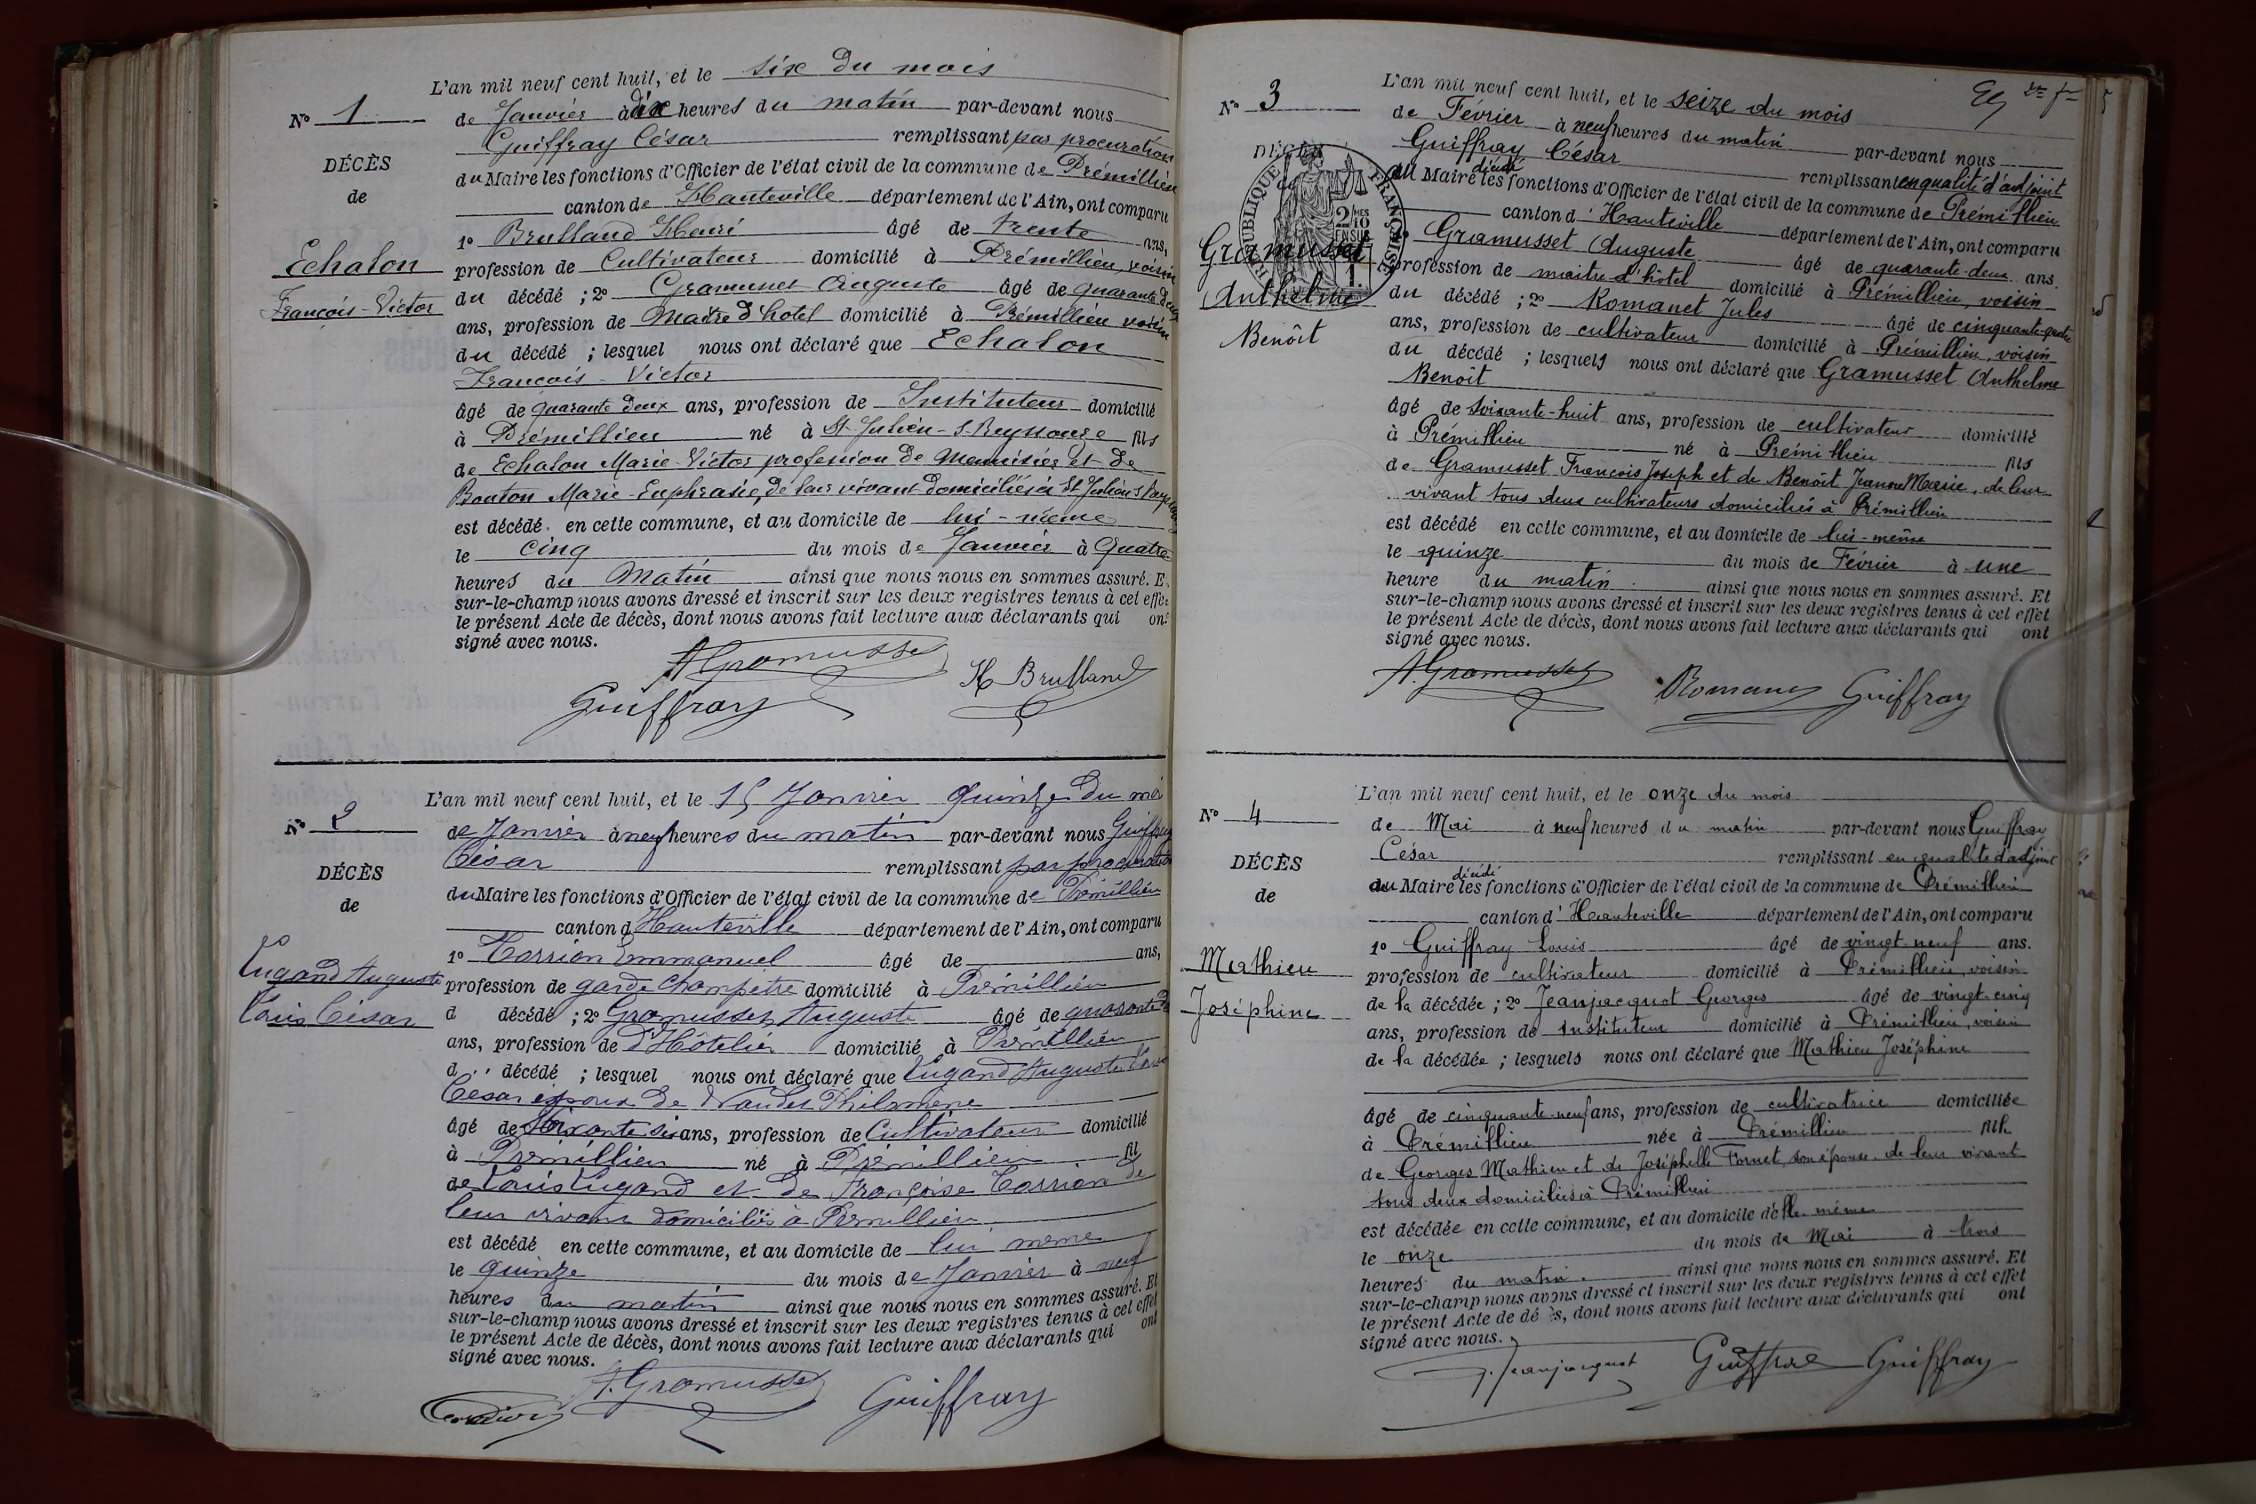 L'an mil neuf cent huit, et le six du mois
N° 1
de Janvier à dix heures du matin par-devant nous
Guiffray César remplissant par procuration
du Maire les fonctions d'Officier de l'état civil de la commune de Prémillieu
canton de Hauteville département de l'Ain, ont comparu
DÉCÈS
de
Echalon
François-Victor
1° Brulland Henri âgé de trente ans,
profession de Cultivateur domicilié à Prémillieu, voisin
du décédé ; 2° Gramusset Auguste âgé de quarante deux
ans, profession de Maître d'hotel domicilié à Prémillieu voisin
du décédé ; lesquel nous ont déclaré que Echalon
François-Victor
âgé de quarante deux ans, profession de Instituteur domicilié
à Prémillieu né à St-Julien-s-Reyssouze fils
de Echalon Marie-Victor profession de Menuisier et de
Bouton Marie-Euphrasie, de leur vivant domiciliés à St Julien s
est décédé en cette commune, et au domicile de lui-même
le cinq du mois de Janvier à Quatre
heures du Matin ainsi que nous nous en sommes assuré. E
sur-le-champ nous avons dressé et inscrit sur les deux registres tenus à cet effe
le présent Acte de décès, dont nous avons fait lecture aux déclarants qui ont
signé avec nous.
A. Gramusset
H Brulland
Guiffray
L'an mil neuf cent huit, et le 15 Janvier quinze du mois
N° 2
de Janvier à neuf heures du matin par-devant nous Guiffray
César remplissant par procuration
du Maire les fonctions d'Officier de l'état civil de la commune de Prémillieu
canton d'Hauteville département de l'Ain, ont comparu
DÉCÈS
de
Lugand Auguste
Louis César
1° Corrion Emmanuel âgé de ans,
profession de garde champêtre domicilié à Prémillieu
d décédé ; 2° Gramusset Auguste âgé de quarante
ans, profession de d'Hôtelier domicilié à Prémillieu
d décédé ; lesquel nous ont déclaré que Lugand Auguste Louis
César époux de Philomène
âgé de soixante six ans, profession de Cultivateur domicilié
à Prémillieu né à Prémillieu fil
de Louis Lugand et de Françoise Corrion de
leur vivant domiciliés à Prémillieu
est décédé en cette commune, et au domicile de lui même
le quinze du mois de Janvier à neuf
heures du matin ainsi que nous nous en sommes assuré. Et
sur-le-champ nous avons dressé et inscrit sur les deux registres tenus à cet effet
le présent Acte de décès, dont nous avons fait lecture aux déclarants qui ont
signé avec nous.
A. Gramusset
Guiffray
L'an mil neuf cent huit, et le seize du mois
N° 3
de Février à neuf heures du matin par-devant nous
Guiffray César remplissant en qualité d'adjoint
décédé
du Maire les fonctions d'Officier de l'état civil de la commune de Prémillieu
canton d'Hauteville département de l'Ain, ont comparu
DÉCÈS
RÉPUBLIQUE FRANÇAISE
Gramusset
Anthelme
Benoît
Gramusset Auguste âgé de quarante-deux ans.
profession de maitre d'hôtel domicilié à Prémillieu, voisin
du décédé ; 2° Romanet Jules âgé de cinquante-quatre
ans, profession de cultivateur domicilié à Prémillieu, voisin
du décédé ; lesquels nous ont déclaré que Gramusset Anthelme
Benoît
âgé de soixante-huit ans, profession de cultivateur domicilié
à Prémillieu né à Prémillieu fils
de Gramusset François Joseph et de Benoît Jeanne Marie, de leur
vivant tous deux cultivateurs domiciliés à Prémillieu
est décédé en cette commune, et au domicile de lui-même
le quinze du mois de Février à une
heure du matin. ainsi que nous nous en sommes assuré. Et
sur-le-champ nous avons dressé et inscrit sur les deux registres tenus à cet effet
le présent Acte de décès, dont nous avons fait lecture aux déclarants qui ont
signé avec nous.
A. Gramusset
Romanet
Guiffray
L'an mil neuf cent huit, et le onze du mois
N° 4
de Mai à neuf heures du matin par-devant nous Guiffray
César remplissant en qualité d'adjoint
décédé
du Maire les fonctions d'Officier de l'état civil de la commune de Prémillieu
canton d'Hauteville département de l'Ain, ont comparu
DÉCÈS
de
Mathieu
Joséphine
1° Guiffray Louis âgé de vingt-neuf ans.
profession de cultivateur domicilié à Prémillieu, voisin
de la décédée ; 2° Jeanjacquot Georges âgé de vingt-cinq
ans, profession de instituteur domicilié à Prémillieu, voisin
de la décédée ; lesquels nous ont déclaré que Mathieu Joséphine
âgé de cinquante-neuf ans, profession de cultivatrice domiciliée
à Prémillieu née à Prémillieu fille
de Georges Mathieu et de Josephelle Tornet, son épouse, de leur vivant
tous deux domiciliés à Prémillieu
est décédée en cette commune, et au domicile d'elle-même
le onze du mois de Mai à trois
heures du matin. ainsi que nous nous en sommes assuré. Et
sur-le-champ nous avons dressé et inscrit sur les deux registres tenus à cet effet
le présent Acte de dé ès, dont nous avons fait lecture aux déclarants qui ont
signé avec nous.
G. Jeanjacquot
Guiffray
Guiffray